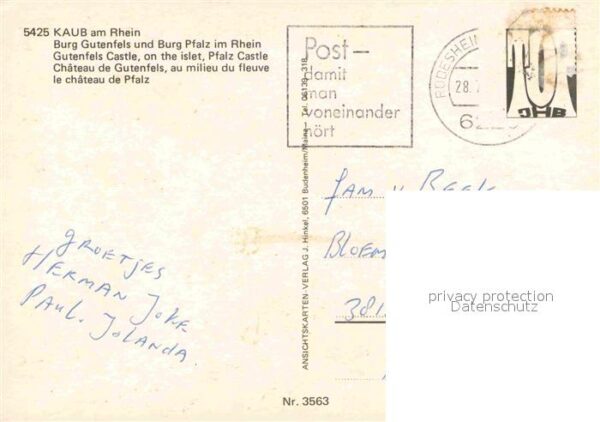 5425 KAUB am Rhein
Burg Gutenfels und Burg Pfalz im Rhein
Gutenfels Castle, on the islet, Pfalz Castle
Château de Gutenfels, au milieu du fleuve
le château de Pfalz
Post-
damit
man
voneinander
hört
RÜDESHEIM
28.
62
10
JHB
Fam. v.
BLOEM
381
GROETJES
HERMAN JOKE
PAUL. JOLANDA.
ANSICHTSKARTEN-VERLAG J. Hinkel, 6501 Budenheim/Mainz - Tel. 06139-318
privacy protection
Datenschutz
Nr. 3563